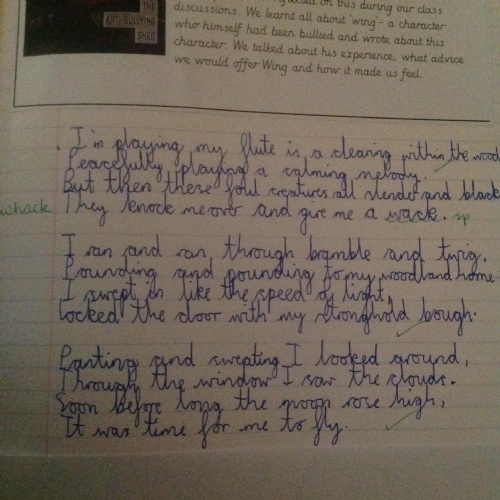 THE
ANTI-BULLYING
SHED
on this during our class
discussions. We learnt all about 'wing'- a character
who himself had been bullied and wrote about this
character. We talked about his experience, what advice
we would offer Wing and how it made us feel.
I'm playing my flute is a clearing within the wood
Peacefully playing a calming melody.
But then these foul creatures all slender and black
whack They knock me over and give me a wack. sp
I ran and ran through bramble and twig.
Pounding and pounding to my woodland home
I swept in like the speed of light,
Locked the door with my stronghold bough.
Panting and sweating I looked around,
Through the window I saw the clouds.
Soon before long the moon rose high,
It was time for me to fly.